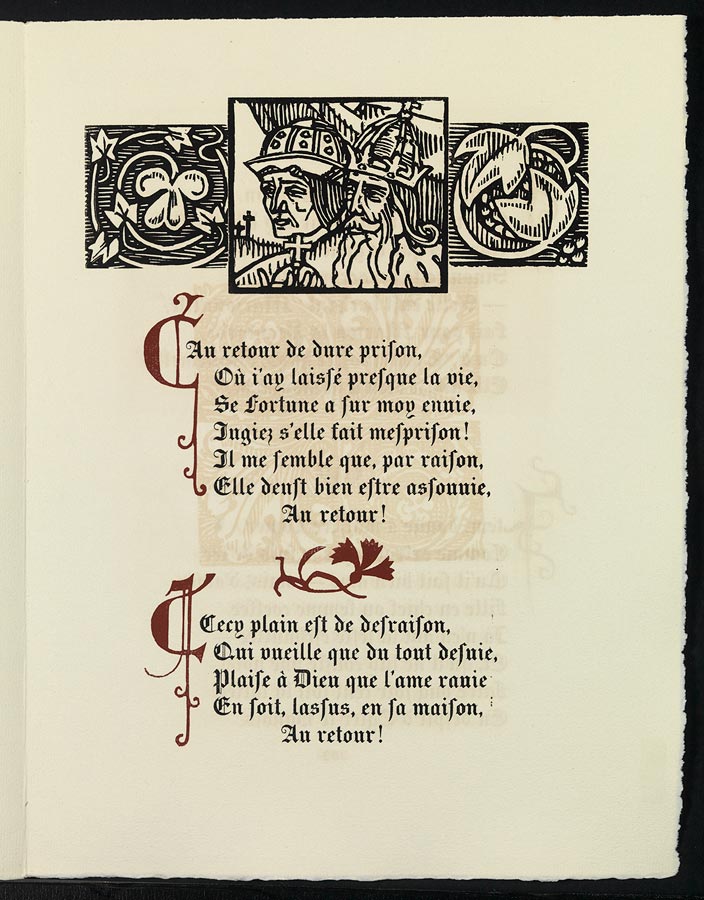 Au retour de dure priſon,
Où i'ay laiſsé preſque la vie,
Se Fortune a ſur moy enuie,
Iugiez s'elle fait meſpriſon!
Il me ſemble que, par raiſon,
Elle deuſt bien eſtre aſsouuie,
Au retour!
Cecy plain eſt de deſraiſon,
Qui vueille que du tout deſuie,
Plaiſe à Dieu que l'ame rauie
En ſoit, laſsus, en ſa maiſon,
Au retour!